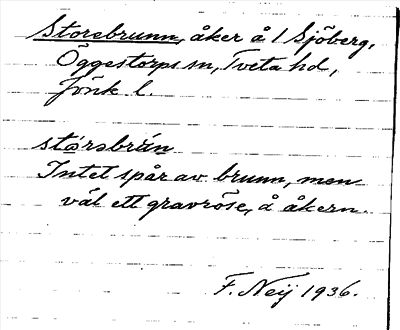 Storebrunn, åker å 1 Sjöberg,
Öggestorps sn, Tveta hd,
Jönk l.
størəbrán
Intet spår av brunn, men
väl ett gravröse, å åkern.
F. Neij 1936.